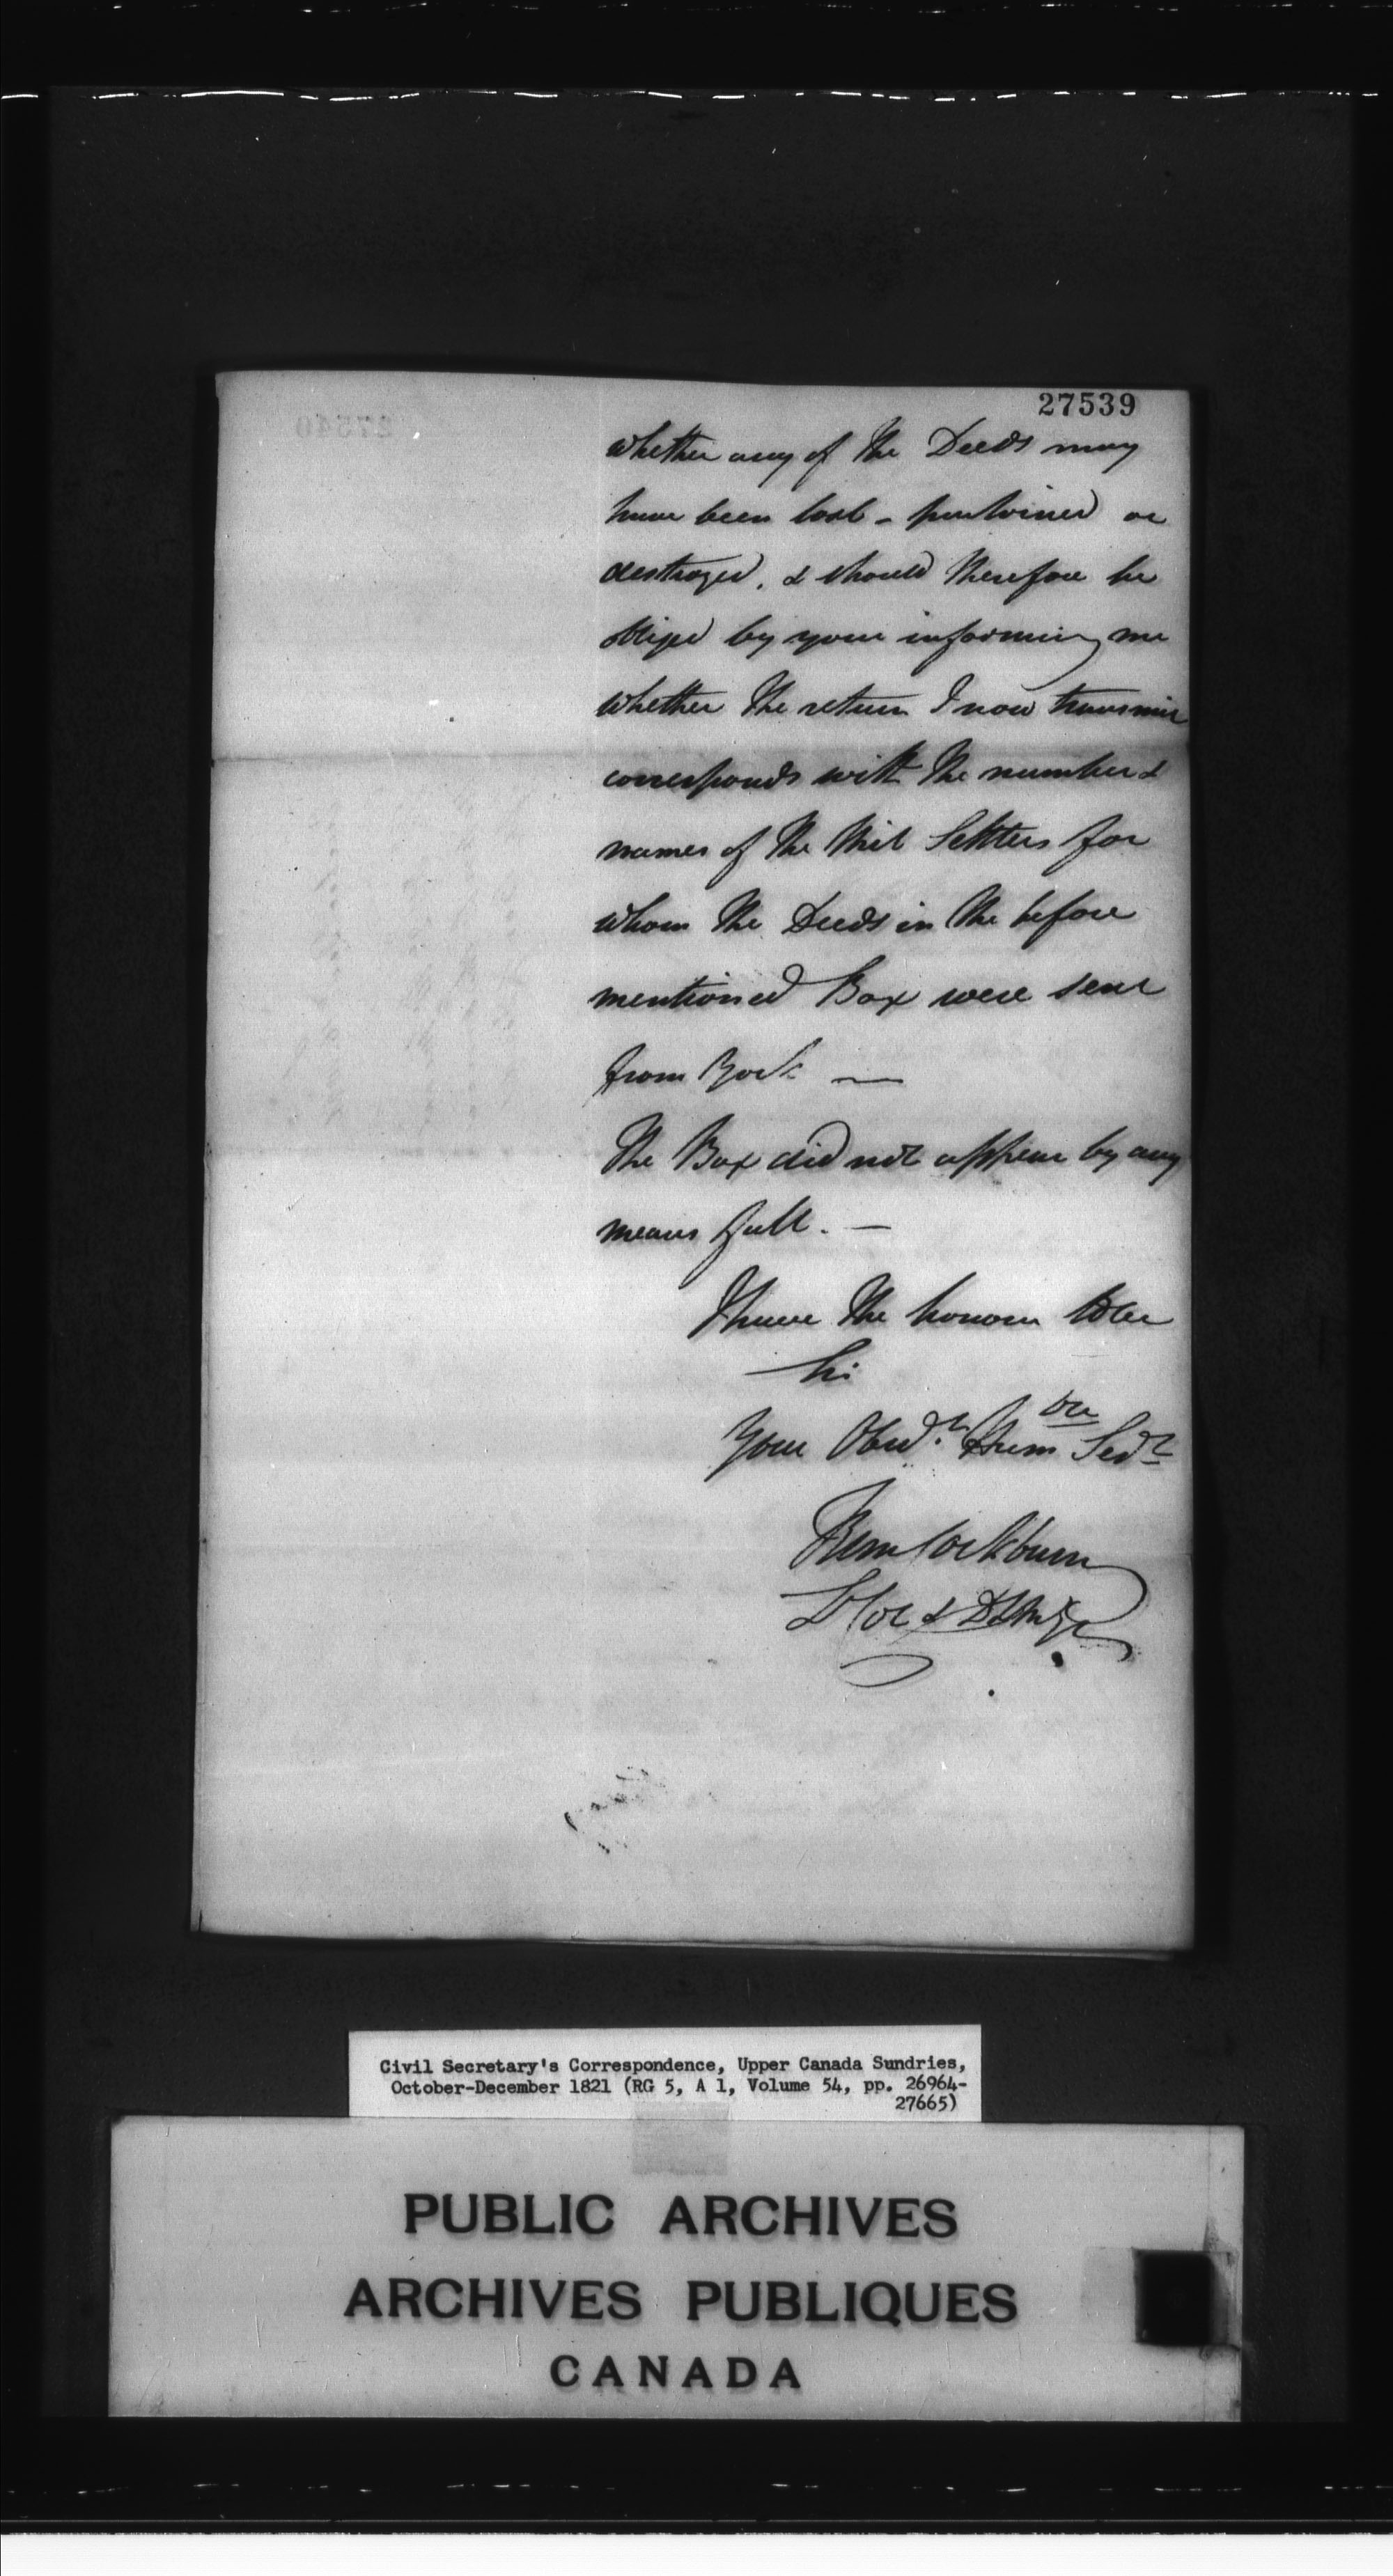 27539
whether any of the Deeds may
have been lost - purloined or
destroyed, & should therefore be
obliged by your informing me
whether the return I now transmit
corresponds with the number &
names of the Mil Settlers for
whom the Deeds in the before
mentioned Box were sent
from York —
The Box did not appear by any
means full. —
I have the honour to be
Sir
Your Obed.t Hum ble Ser.t
Cockburn
Civil Secretary's Correspondence, Upper Canada Sundries,
October-December 1821 (RG 5, A 1, Volume 54, pp. 26964-
27665)
PUBLIC ARCHIVES
ARCHIVES PUBLIQUES
CANADA